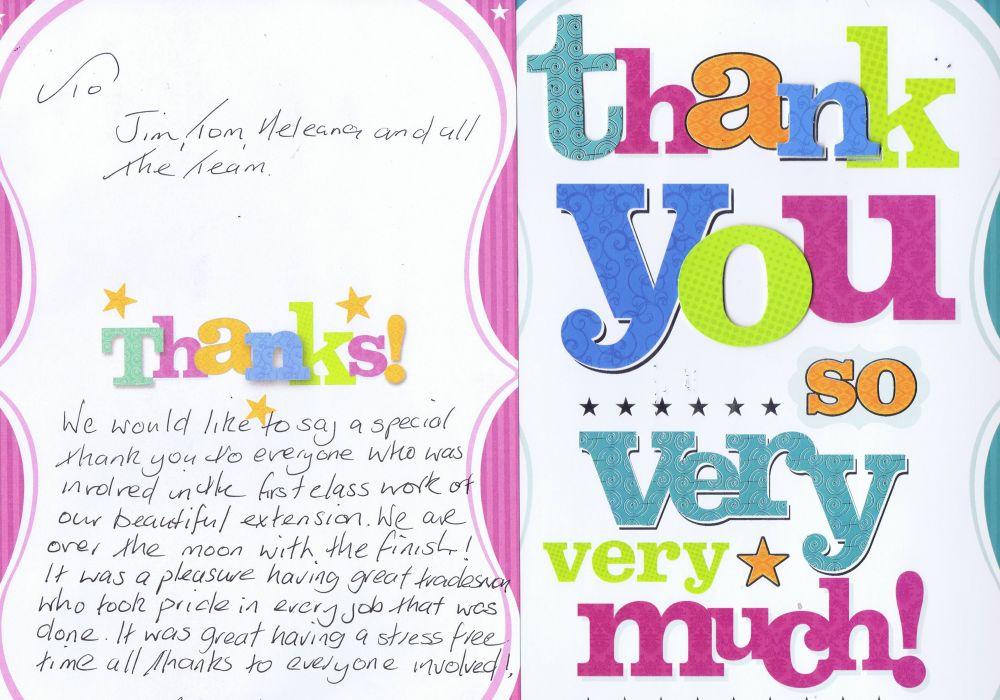 To
Jim, Tom, Heleana and all
the Team.
Thanks!
We would like to say a special
thank you to everyone who was
involved in the first class work of
our beautiful extension. We are
over the moon with the finish!
It was a pleasure having great tradesmen
who took pride in every job that was
done. It was great having a stress free
time all thanks to everyone involved!
thank
you
so
very
very
much!